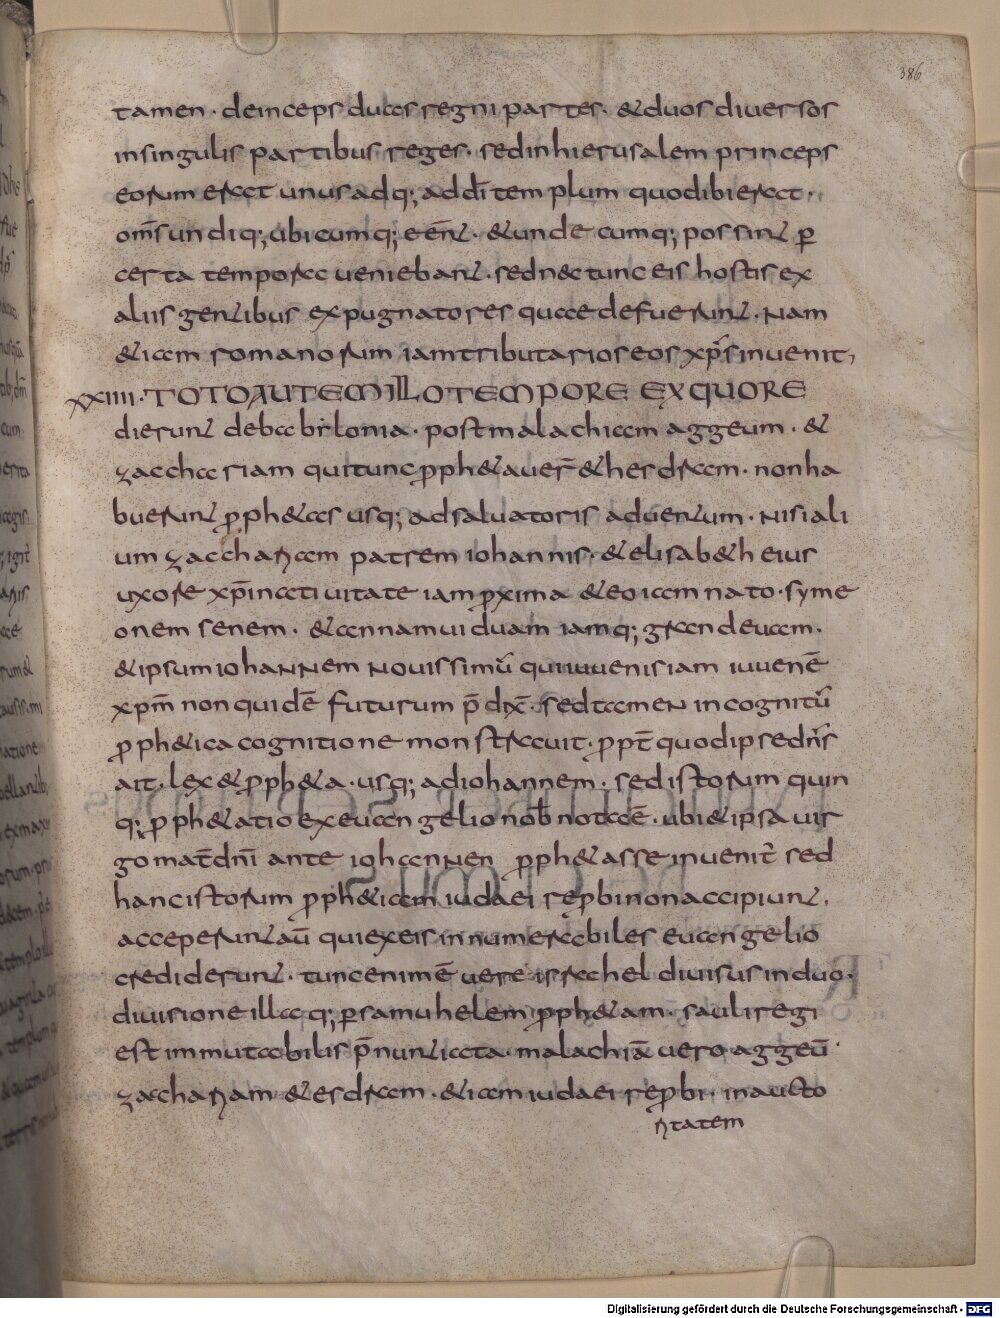 386
tamen · deinceps duas regni partes · & duos diuersos
insingulis partibus reges · sedinhierusalem princeps
eorum erat unus adq; addī templum quodibierat ·
om̄s undiq; ubicumq; eēnt · & undecumq; possint ꝑ
certa tempora ueniebant · sednectunc eis hostis ex
aliis gentibus expugnatores quae defuerunt · Nam
& iam romanorum iamtributarios eos xp̄s inuenit,
XXIIII · TOTO AUTEM ILLO TEMPORE EX QUO RE
dierunt debabilonia · postmalachiam aggeum · &
zacchariam quitunc ꝓph&auer̄ & hesdram · nonha
buerunt ꝓph&as usq; adsaluatoris aduentum · Nisiali
um zacchariam patrem iohannis · & elisab&h eius
uxore xp̄i natiuitate iam ꝓxima & eo iam nato · syme
onem senem · & annam uiduam iamq; grandeuam ·
& ipsum iohaNNem Nouissimū quiiuuenis iam iuuenē
xpm̄ non quidē futurum p̄dix̄ · sed tamen incognitū
ꝓph&ica cognitione monstrauit · ꝓpt̄ quodipsedn̄s
ait · lex & ꝓph&a · usq; adiohannem · sed istorum quin
q; ꝓph&atio exeuangelio nob̄ notaē · ubi & ipsa uir
go mat̄ dn̄i ante iohanNen ꝓph&asse inuenit̄ sed
hanc istorum ꝓph&iam iudaei reꝓbi non accipiunt ·
acceperunt aū quiexeis innumerabiles euangelio
crediderunt · tuncenim ē uere israhel diuisus induo ·
diuisione illa q; ꝑsamuhelem ꝓph&am · sauli regi
est immutabilis p̄nuntiata · malachiā uero aggeū ·
zachariam & esdram · & iam iudaei reꝓbi · inaucto
ritatem
Digitalisierung gefördert durch die Deutsche Forschungsgemeinschaft - DFG